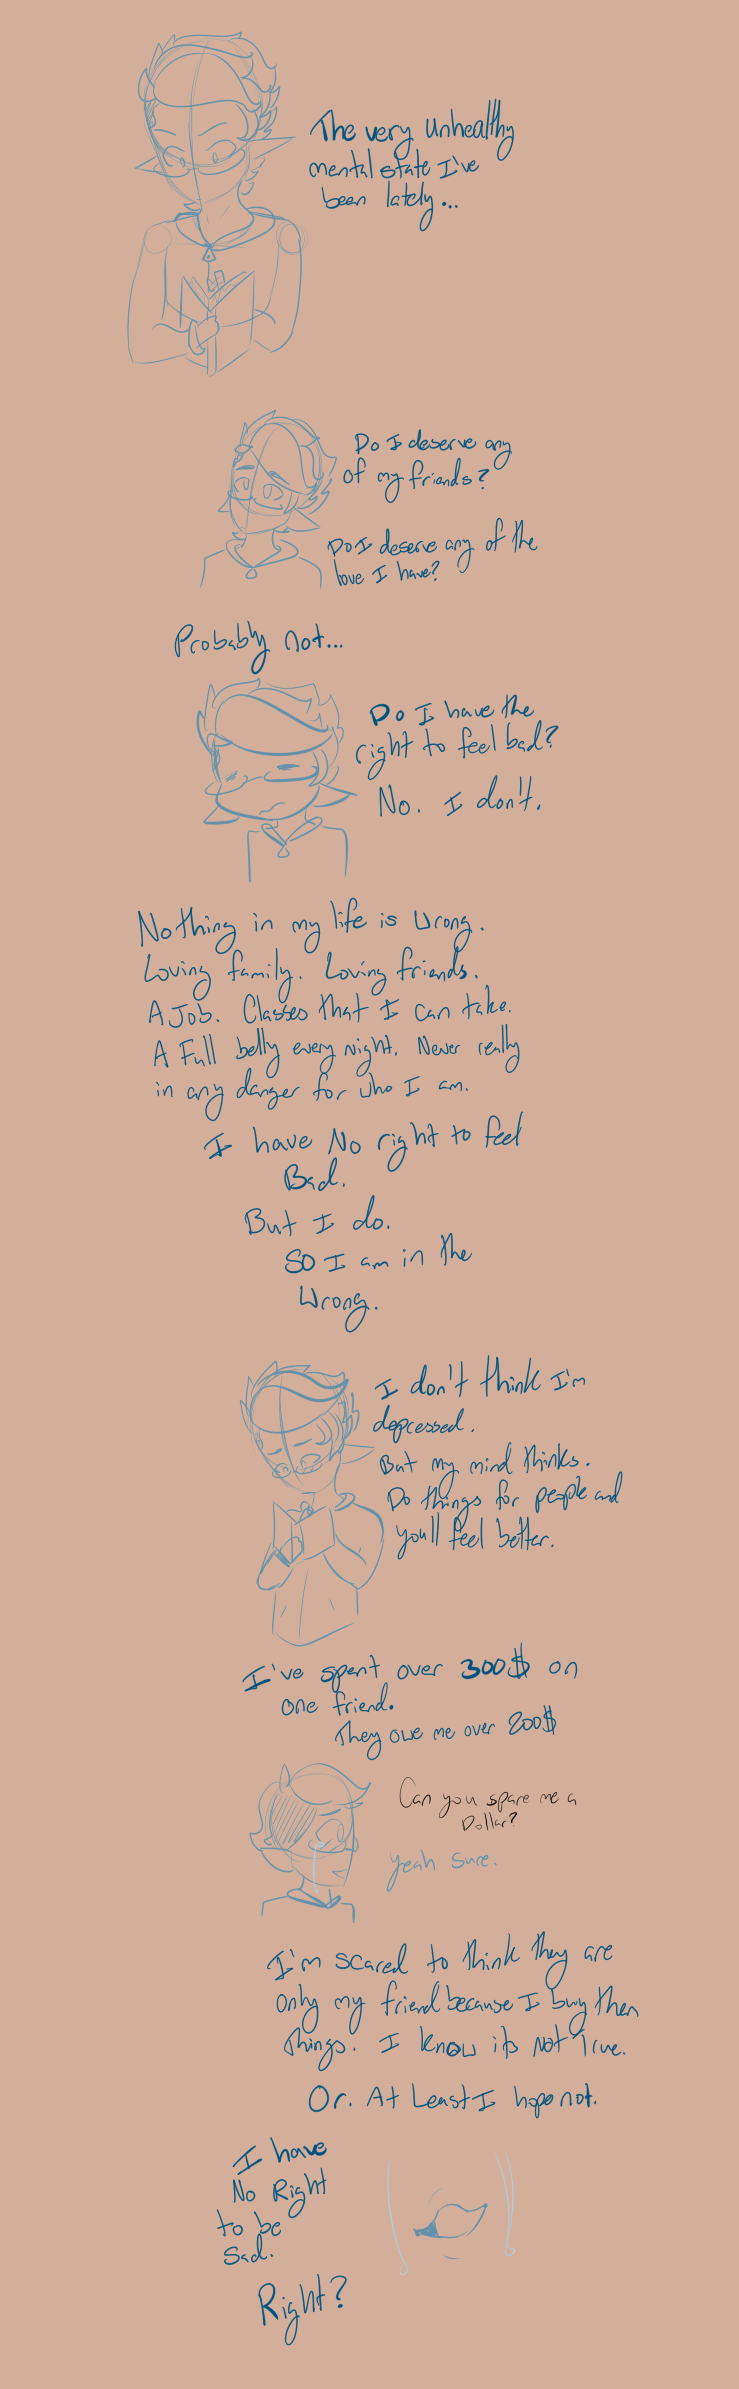 The very unhealthy
mental state I've
been lately...
Do I deserve any
of my friends?
Do I deserve any of the
love I have?
Probably not...
Do I have the
right to feel bad?
No. I don't.
Nothing in my life is wrong.
Loving family. Loving friends.
A Job. Classes that I can take.
A Full belly every night. Never really
in any danger for who I am.
I have No right to feel
Bad.
But I do.
SO I am in the
Wrong.
I don't think I'm
depressed.
But my mind thinks.
Do things for people and
you'll feel better.
I've spent over 300$ on
one friend.
They owe me over 200$
Can you spare me a
Dollar?
yeah sure.
I'm scared to think they are
only my friend because I buy them
things. I know its not true.
Or. At Least I hope not.
I have
No Right
to be
Sad.
Right?